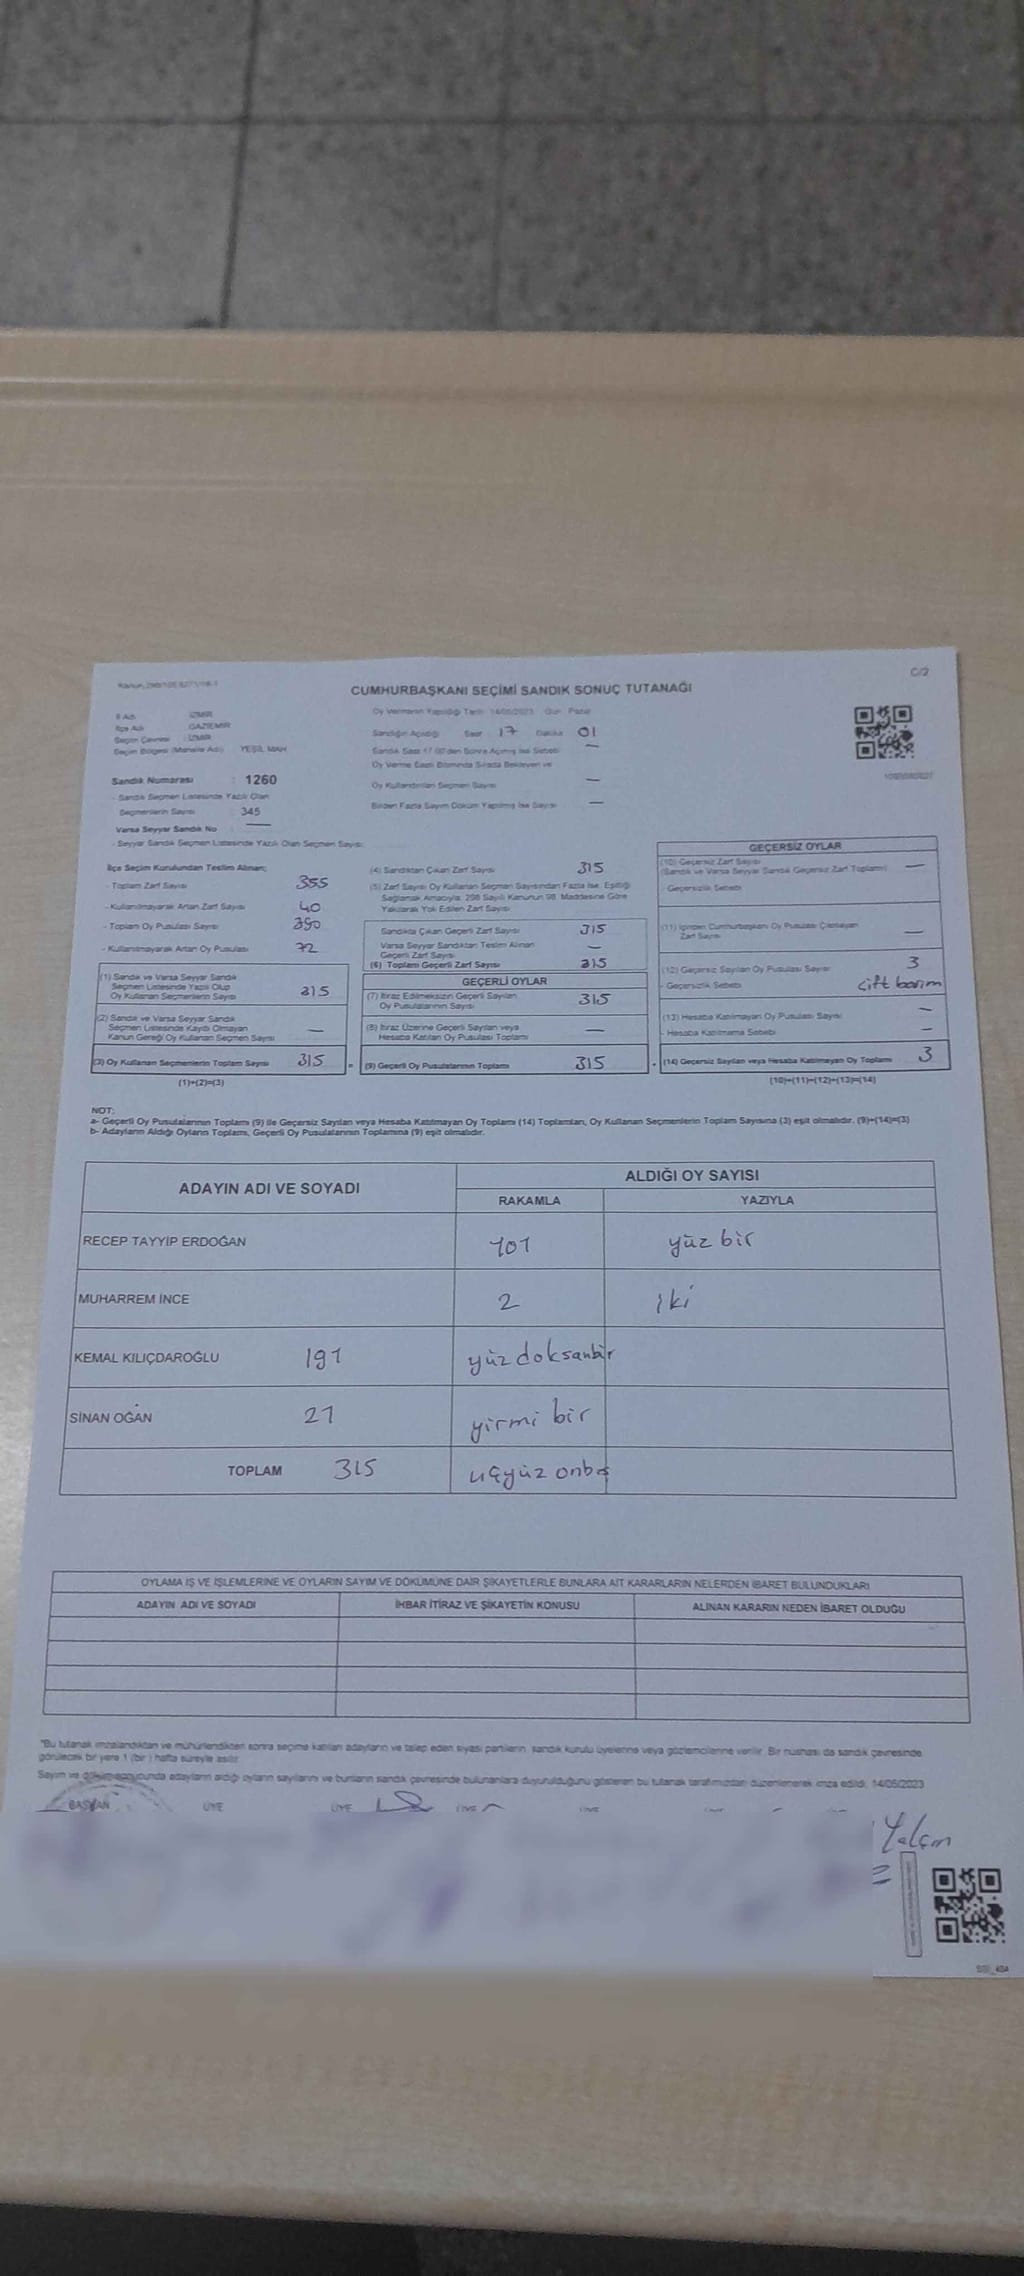 C/2
CUMHURBAŞKANI SEÇİMİ SANDIK SONUÇ TUTANAĞI
İl Adı : İZMİR
İlçe Adı : GAZİEMİR
Seçim Çevresi : İZMİR
Seçim Bölgesi (Mahalle Adı) YEŞİL MAH
Sandık Numarası : 1260
- Sandık Seçmen Listesinde Yazılı Olan
Seçmenlerin Sayısı : 345
Varsa Seyyar Sandık No —
- Seyyar Sandık Seçmen Listesinde Yazılı Olan Seçmen Sayısı:
Oy Vermenin Yapıldığı Tarih 14/05/2023 Gün Pazar
Sandığın Açıldığı Saat 17 Dakika 01
Sandık Saat 17.00'den Sonra Açılmış İse Sebebi —
Oy Verme Saati Bitiminde Sırada Bekleyen ve
Oy Kullandırılan Seçmen Sayısı —
Birden Fazla Sayım Döküm Yapılmış İse Sayısı —
İlçe Seçim Kurulundan Teslim Alınan;
- Toplam Zarf Sayısı 355
- Kullanılmayarak Artan Zarf Sayısı 40
- Toplam Oy Pusulası Sayısı
- Kullanılmayarak Artan Oy Pusulası 72
(1) Sandık ve Varsa Seyyar Sandık
Seçmen Listesinde Yazılı Olup
Oy Kullanan Seçmenlerin Sayısı 315
(2) Sandık ve Varsa Seyyar Sandık
Seçmen Listesinde Kayıtlı Olmayan
Kanun Gereği Oy Kullanan Seçmen Sayısı —
(3) Oy Kullanan Seçmenlerin Toplam Sayısı 315
(1)+(2)=(3)
(4) Sandıktan Çıkan Zarf Sayısı 315
(5) Zarf Sayısı Oy Kullanan Seçmen Sayısından Fazla İse, Eşitliği
Sağlamak Amacıyla, 298 Sayılı Kanunun 98. Maddesine Göre
Yakılarak Yok Edilen Zarf Sayısı
Sandıkta Çıkan Geçerli Zarf Sayısı 315
Varsa Seyyar Sandıktan Teslim Alınan
Geçerli Zarf Sayısı —
(6) Toplam Geçerli Zarf Sayısı 315
GEÇERLİ OYLAR
(7) İtiraz Edilmeksizin Geçerli Sayılan
Oy Pusulalarının Sayısı 315
(8) İtiraz Üzerine Geçerli Sayılan veya
Hesaba Katılan Oy Pusulası Toplamı —
(9) Geçerli Oy Pusulalarının Toplamı 315
GEÇERSİZ OYLAR
(10) Geçersiz Zarf Sayısı
(Sandık ve Varsa Seyyar Sandık Geçersiz Zarf Toplamı) —
- Geçersizlik Sebebi
(11) İçinden Cumhurbaşkanı Oy Pusulası Çıkmayan
Zarf Sayısı —
(12) Geçersiz Sayılan Oy Pusulası Sayısı 3
- Geçersizlik Sebebi çift basım
(13) Hesaba Katılmayan Oy Pusulası Sayısı —
- Hesaba Katılmama Sebebi —
(14) Geçersiz Sayılan veya Hesaba Katılmayan Oy Toplamı 3
(10)+(11)+(12)+(13)=(14)
NOT:
a- Geçerli Oy Pusulalarının Toplamı (9) ile Geçersiz Sayılan veya Hesaba Katılmayan Oy Toplamı (14) Toplamları, Oy Kullanan Seçmenlerin Toplam Sayısına (3) eşit olmalıdır. (9)+(14)=(3)
b- Adayların Aldığı Oyların Toplamı, Geçerli Oy Pusulalarının Toplamına (9) eşit olmalıdır.
ADAYIN ADI VE SOYADI
ALDIĞI OY SAYISI
RAKAMLA YAZIYLA
RECEP TAYYİP ERDOĞAN 101 yüz bir
MUHARREM İNCE 2 iki
KEMAL KILIÇDAROĞLU 191 yüzdoksanbir
SİNAN OĞAN 21 yirmi bir
TOPLAM 315 üçyüz onbeş
OYLAMA İŞ VE İŞLEMLERİNE VE OYLARIN SAYIM VE DÖKÜMÜNE DAİR ŞİKAYETLERLE BUNLARA AİT KARARLARIN NELERDEN İBARET BULUNDUKLARI
ADAYIN ADI VE SOYADI İHBAR İTİRAZ VE ŞİKAYETİN KONUSU ALINAN KARARIN NEDEN İBARET OLDUĞU
"Bu tutanak imzalandıktan ve mühürlendikten sonra seçime katılan adayların ve talep eden siyasi partilerin, sandık kurulu üyelerine veya gözlemcilerine verilir. Bir nüshası da sandık çevresinde
görülecek bir yere 1 (bir) hafta süreyle asılır.
Sayım ve döküm sonucunda adayların aldığı oyların sayılarını ve bunların sandık çevresinde bulunanlara duyurulduğunu gösteren bu tutanak tarafımızdan düzenlenerek imza edildi. 14/05/2023
BAŞKAN ÜYE ÜYE ÜYE
Yalçın